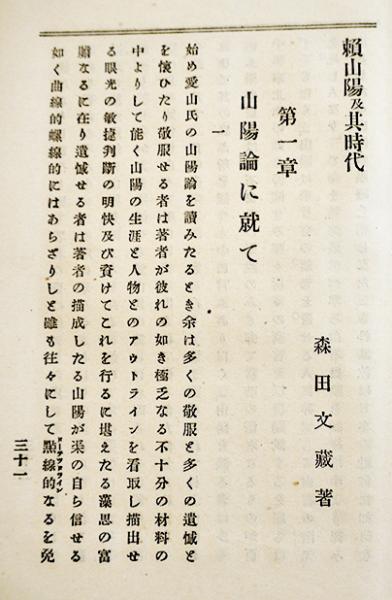 頼山陽及其時代
森田文藏著
第一章
山陽論に就て
一
始め愛山氏の山陽論を讀みたるとき余は多くの敬服と多くの遺憾と
を懷ひたり敬服せる者は著者が彼れの如き極乏なる不十分の材料の
中よりして能く山陽の生涯と人物とのアウトラインを看取し描出せ
る眼光の敏捷判斷の明快及び資けてこれを行るに堪えたる藻思の富
贍なるに在り遺憾せる者は著者の描成したる山陽が渠の自ら信せる
如く曲線的螺線的にはあらざりしと雖も往々にして點線的なるを免
ドーテツドライン
三十一